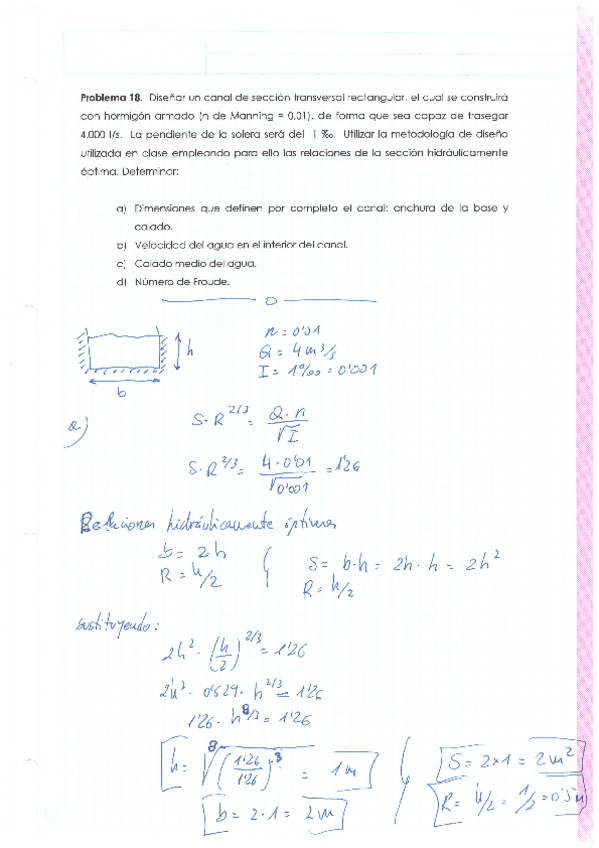 Problema 18. Diseñar un canal de sección transversal rectangular, el cual se construirá
con hormigón armado (n de Manning = 0,01), de forma que sea capaz de trasegar
4.000 l/s. La pendiente de la solera será del 1 ‰. Utilizar la metodología de diseño
utilizada en clase empleando para ello las relaciones de la sección hidráulicamente
óptima. Determinar:
a) Dimensiones que definen por completo el canal: anchura de la base y
calado.
b) Velocidad del agua en el interior del canal.
c) Calado medio del agua.
d) Número de Froude.
n = 0'01
h
Q = 4 m³/s
I = 1‰ = 0'001
b
a)
S·R^2/3 = Q·n / √I
S·R^2/3 = 4·0'01 / √0'001 = 1'26
Relaciones hidráulicamente óptimas
b = 2·h
R = h/2
S = b·h = 2h·h = 2h²
R = h/2
sustituyendo:
2h² · (h/2)^2/3 = 1'26
2h² · 0'629 · h^2/3 = 1'26
1'26 · h^8/3 = 1'26
h = ⁸√(1'26/1'26)³ = 1 m
b = 2·1 = 2 m
S = 2×1 = 2 m²
R = h/2 = 1/2 = 0'5 m